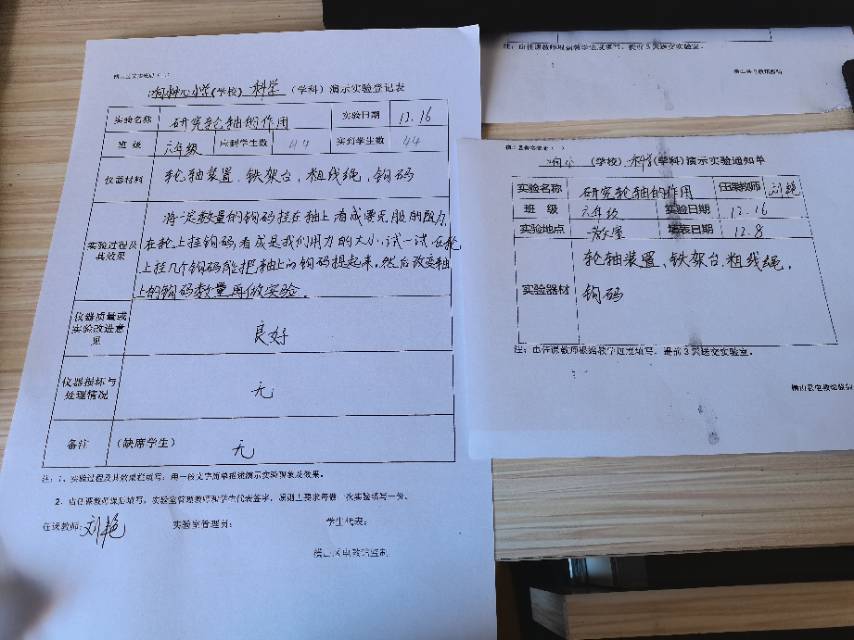 (学校) 科学 (学科) 演示实验登记表
实验名称 研究轮轴的作用 实验日期 12.16
班 级 六年级 应到学生数 44 实到学生数 44
仪器材料 轮轴装置、铁架台、粗线绳、钩码
实验过程及其效果
将一定数量的钩码挂在轴上看成要克服的阻力,
在轮上挂钩码,看成是我们用力的大小,试一试,在轮
上挂几个钩码能把轴上的钩码提起来,然后改变轴
上的钩码数量再做实验。
仪器质量或实验改进意见 良好
仪器损坏与处理情况 无
备注 (缺席学生) 无
注:1、实验过程及其效果栏填写:用一段文字简单描述演示实验现象及效果。
2、由任课教师课后填写,实验室管理教师和学生代表签字,原则上要求每做一次实验填写一份。
任课教师:刘艳 实验室管理员: 学生代表:
横山区电教站监制
注:由任课教师根据教学进度填写,提前3天送交实验室。
(学校) 科学(学科) 演示实验通知单
实验名称 研究轮轴的作用 任课教师 刘艳
班 级 六年级 实验日期 12.16
实验地点 教室 填表日期 12.8
实验器材
轮轴装置、铁架台、粗线绳,
钩码
注:由任课教师根据教学进度填写,提前3天送交实验室。